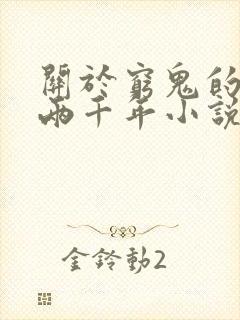 關於窮鬼的
兩千年小說
金鈴動2